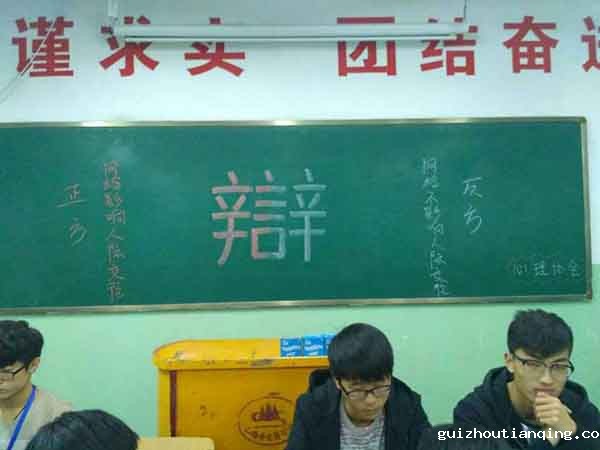 谨求实 团结奋进
正方
网络影响人际交往
辩
网络不影响人际交往
反方
心理协会
guizhoutianqing.co